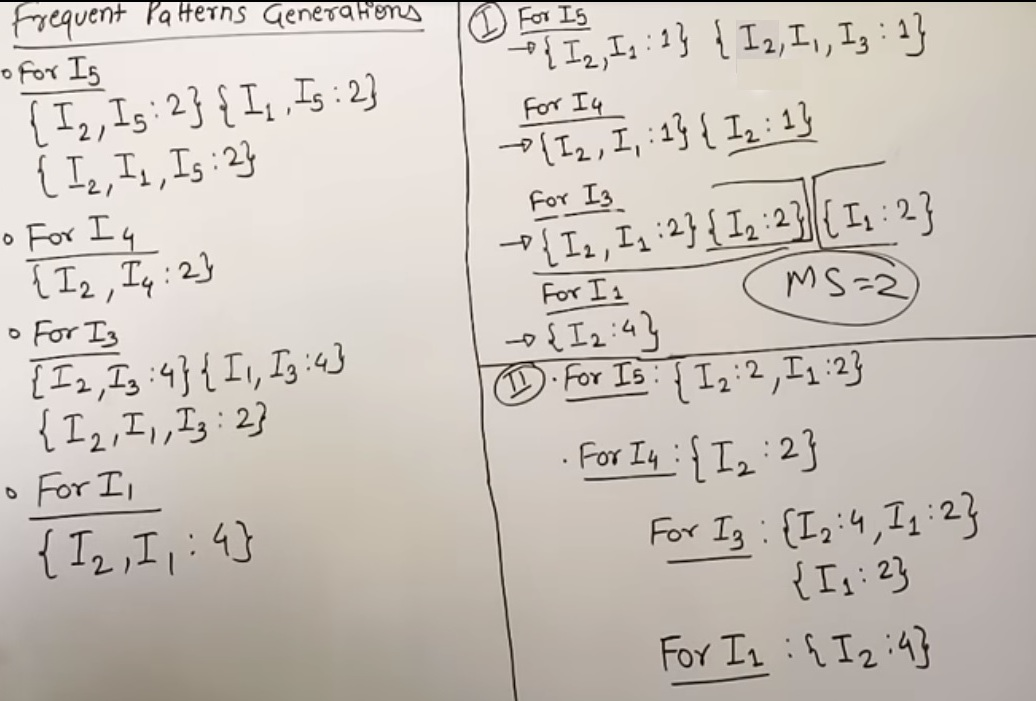 Frequent Patterns Generations
For I5
{I2, I5:2} {I1, I5:2}
{I2, I1, I5:2}
For I4
{I2, I4:2}
For I3
{I2, I3:4} {I1, I3:4}
{I2, I1, I3:2}
For I1
{I2, I1:4}
I For I5
→{I2, I1:1} {I2, I1, I3:1}
For I4
→{I2, I1:1} {I2:1}
For I3
→{I2, I1:2} {I2:2} {I1:2}
For I1
→{I2:4}
MS=2
II · For I5: {I2:2, I1:2}
· For I4: {I2:2}
For I3: {I2:4, I1:2}
{I1:2}
For I1: {I2:4}